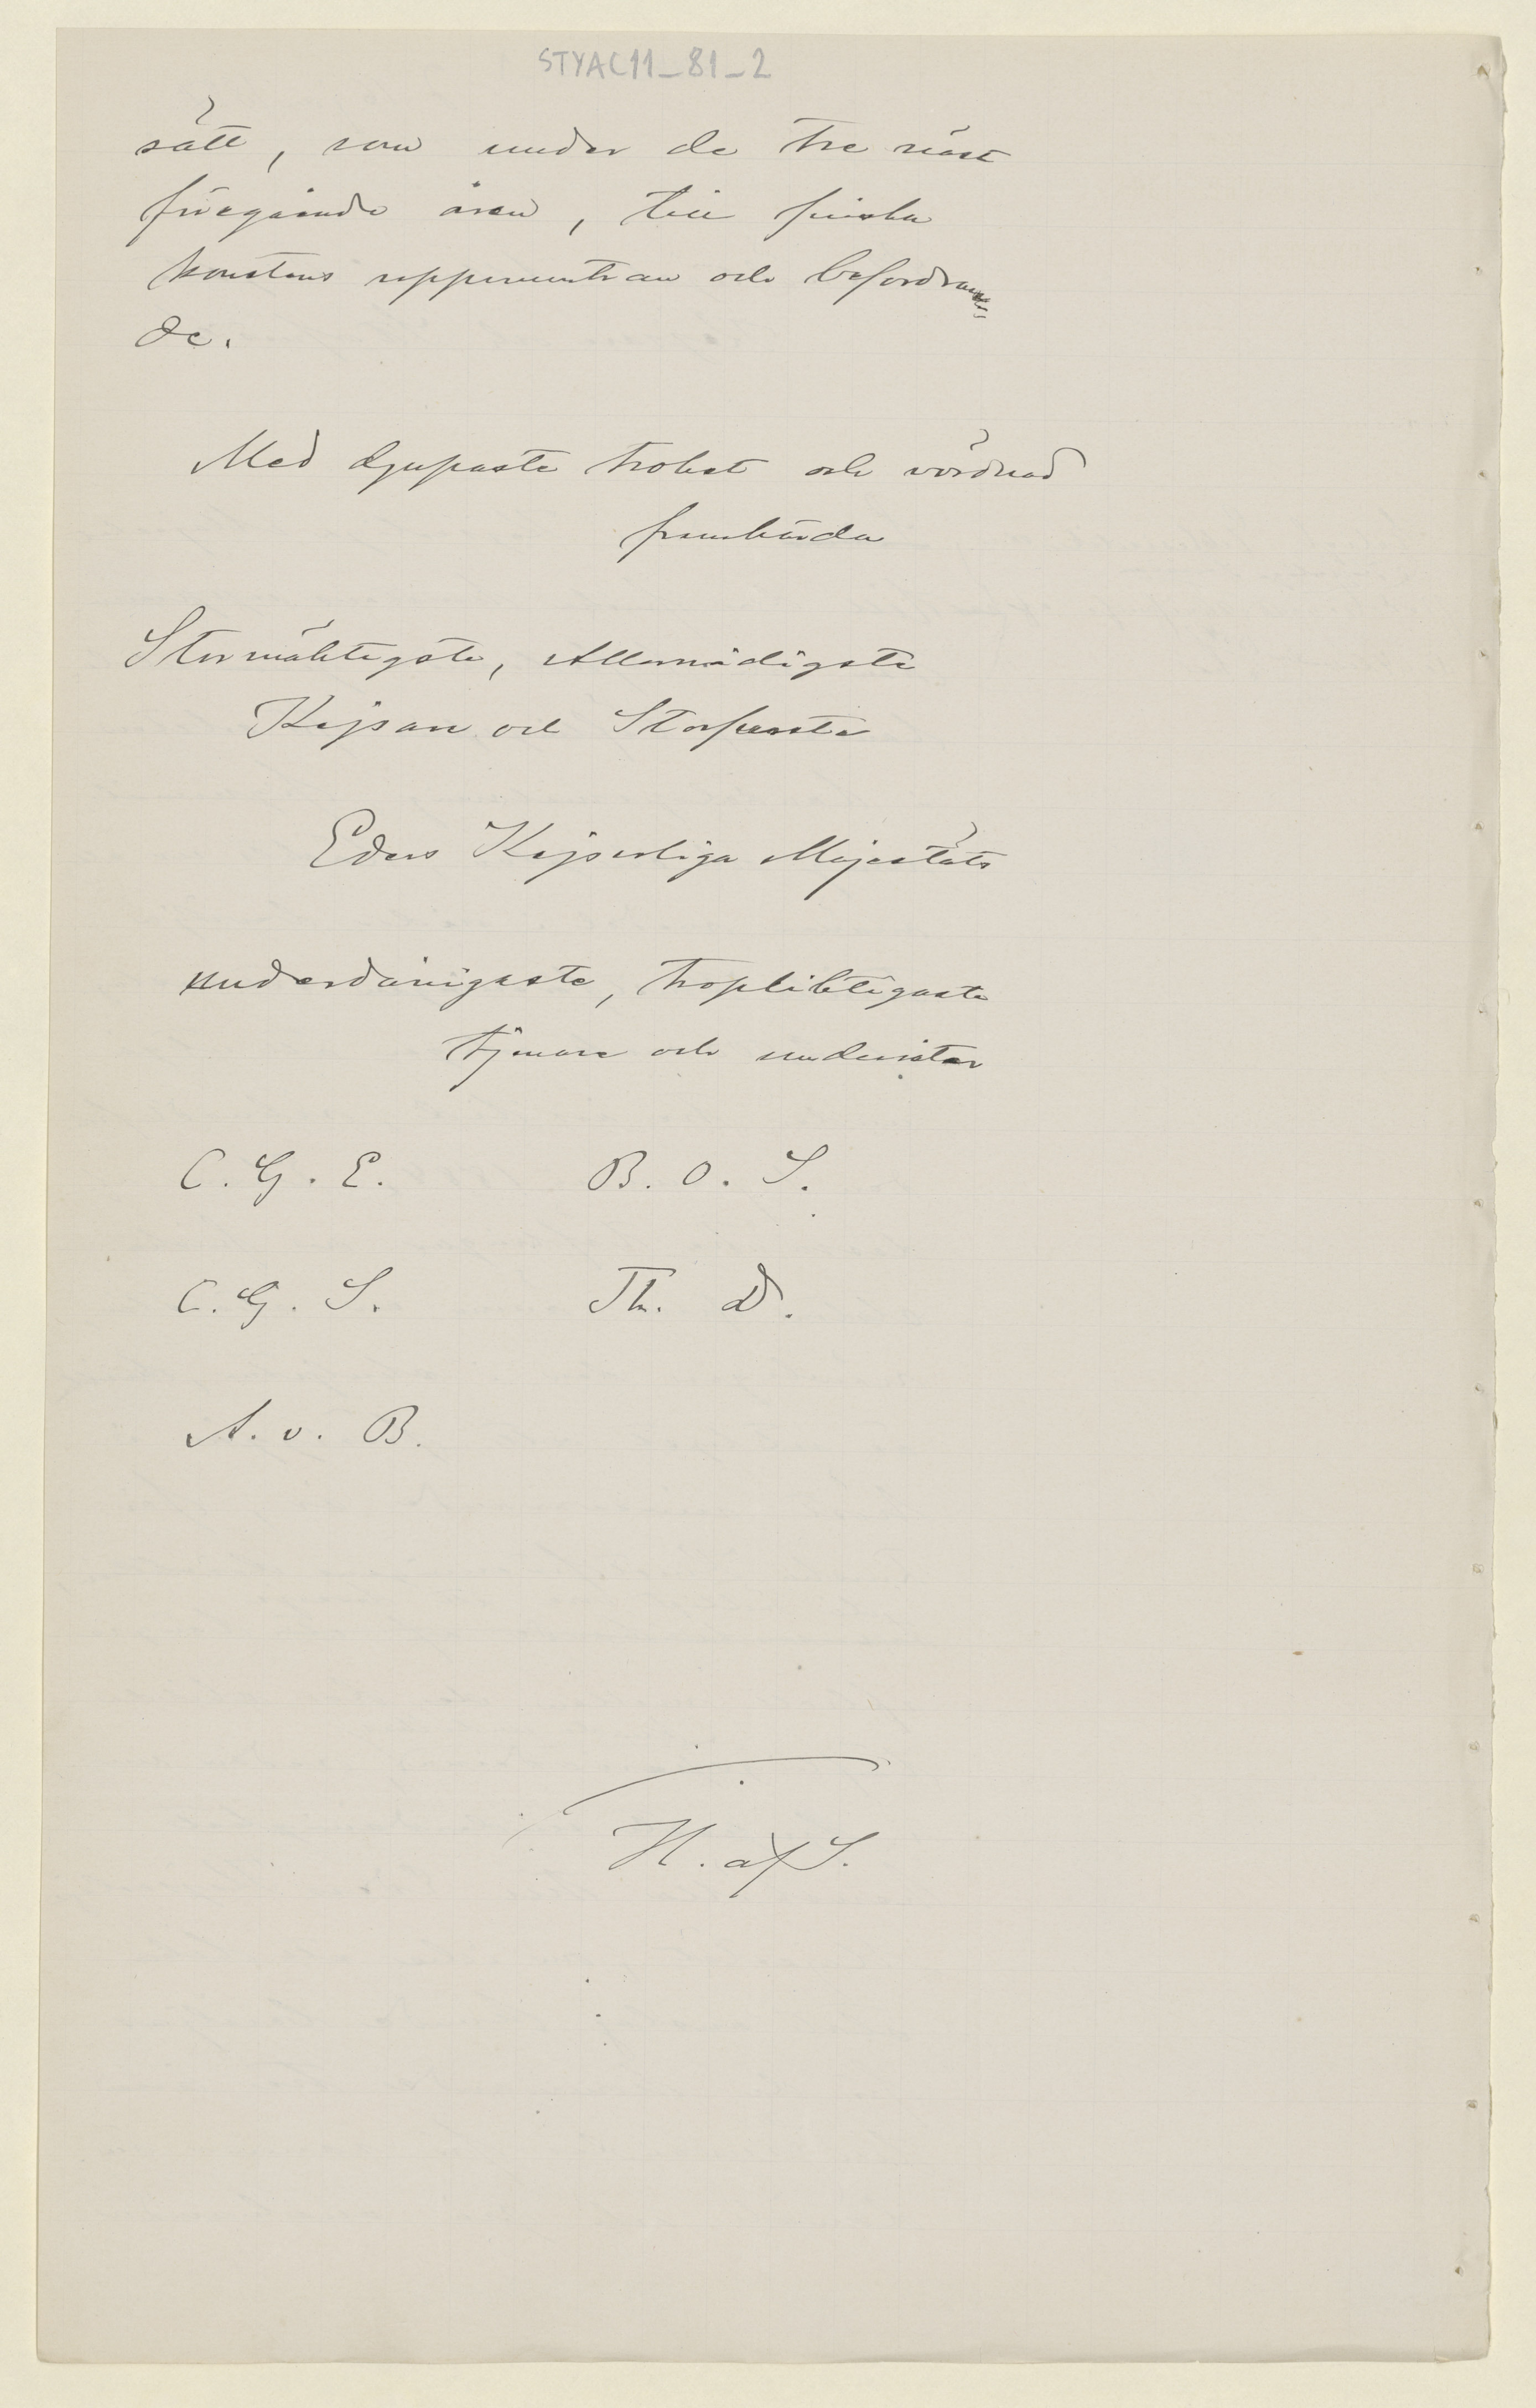 STYAC11_81_2
sätt, som under de tre näst
föregående åren, till finska
konstens uppmuntran och befordran=
de.
Med djupaste trohet och vördnad
framhärda
Stormäktigste, Allernådigste
Kejsare och Storfurste
Eders Kejserliga Majestäts
underdånigaste, tropliktigaste
tjenare och undersåtar
C. G. E. B. O. S.
C. G. S. Th. D.
A. v. B.
H. af S.